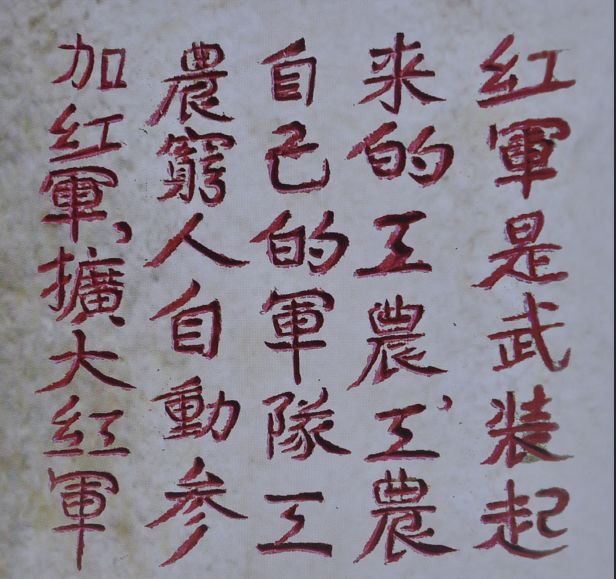 紅軍是武装起
来的工農,工農
自己的軍隊工
農窮人自動参
加紅軍,擴大紅軍